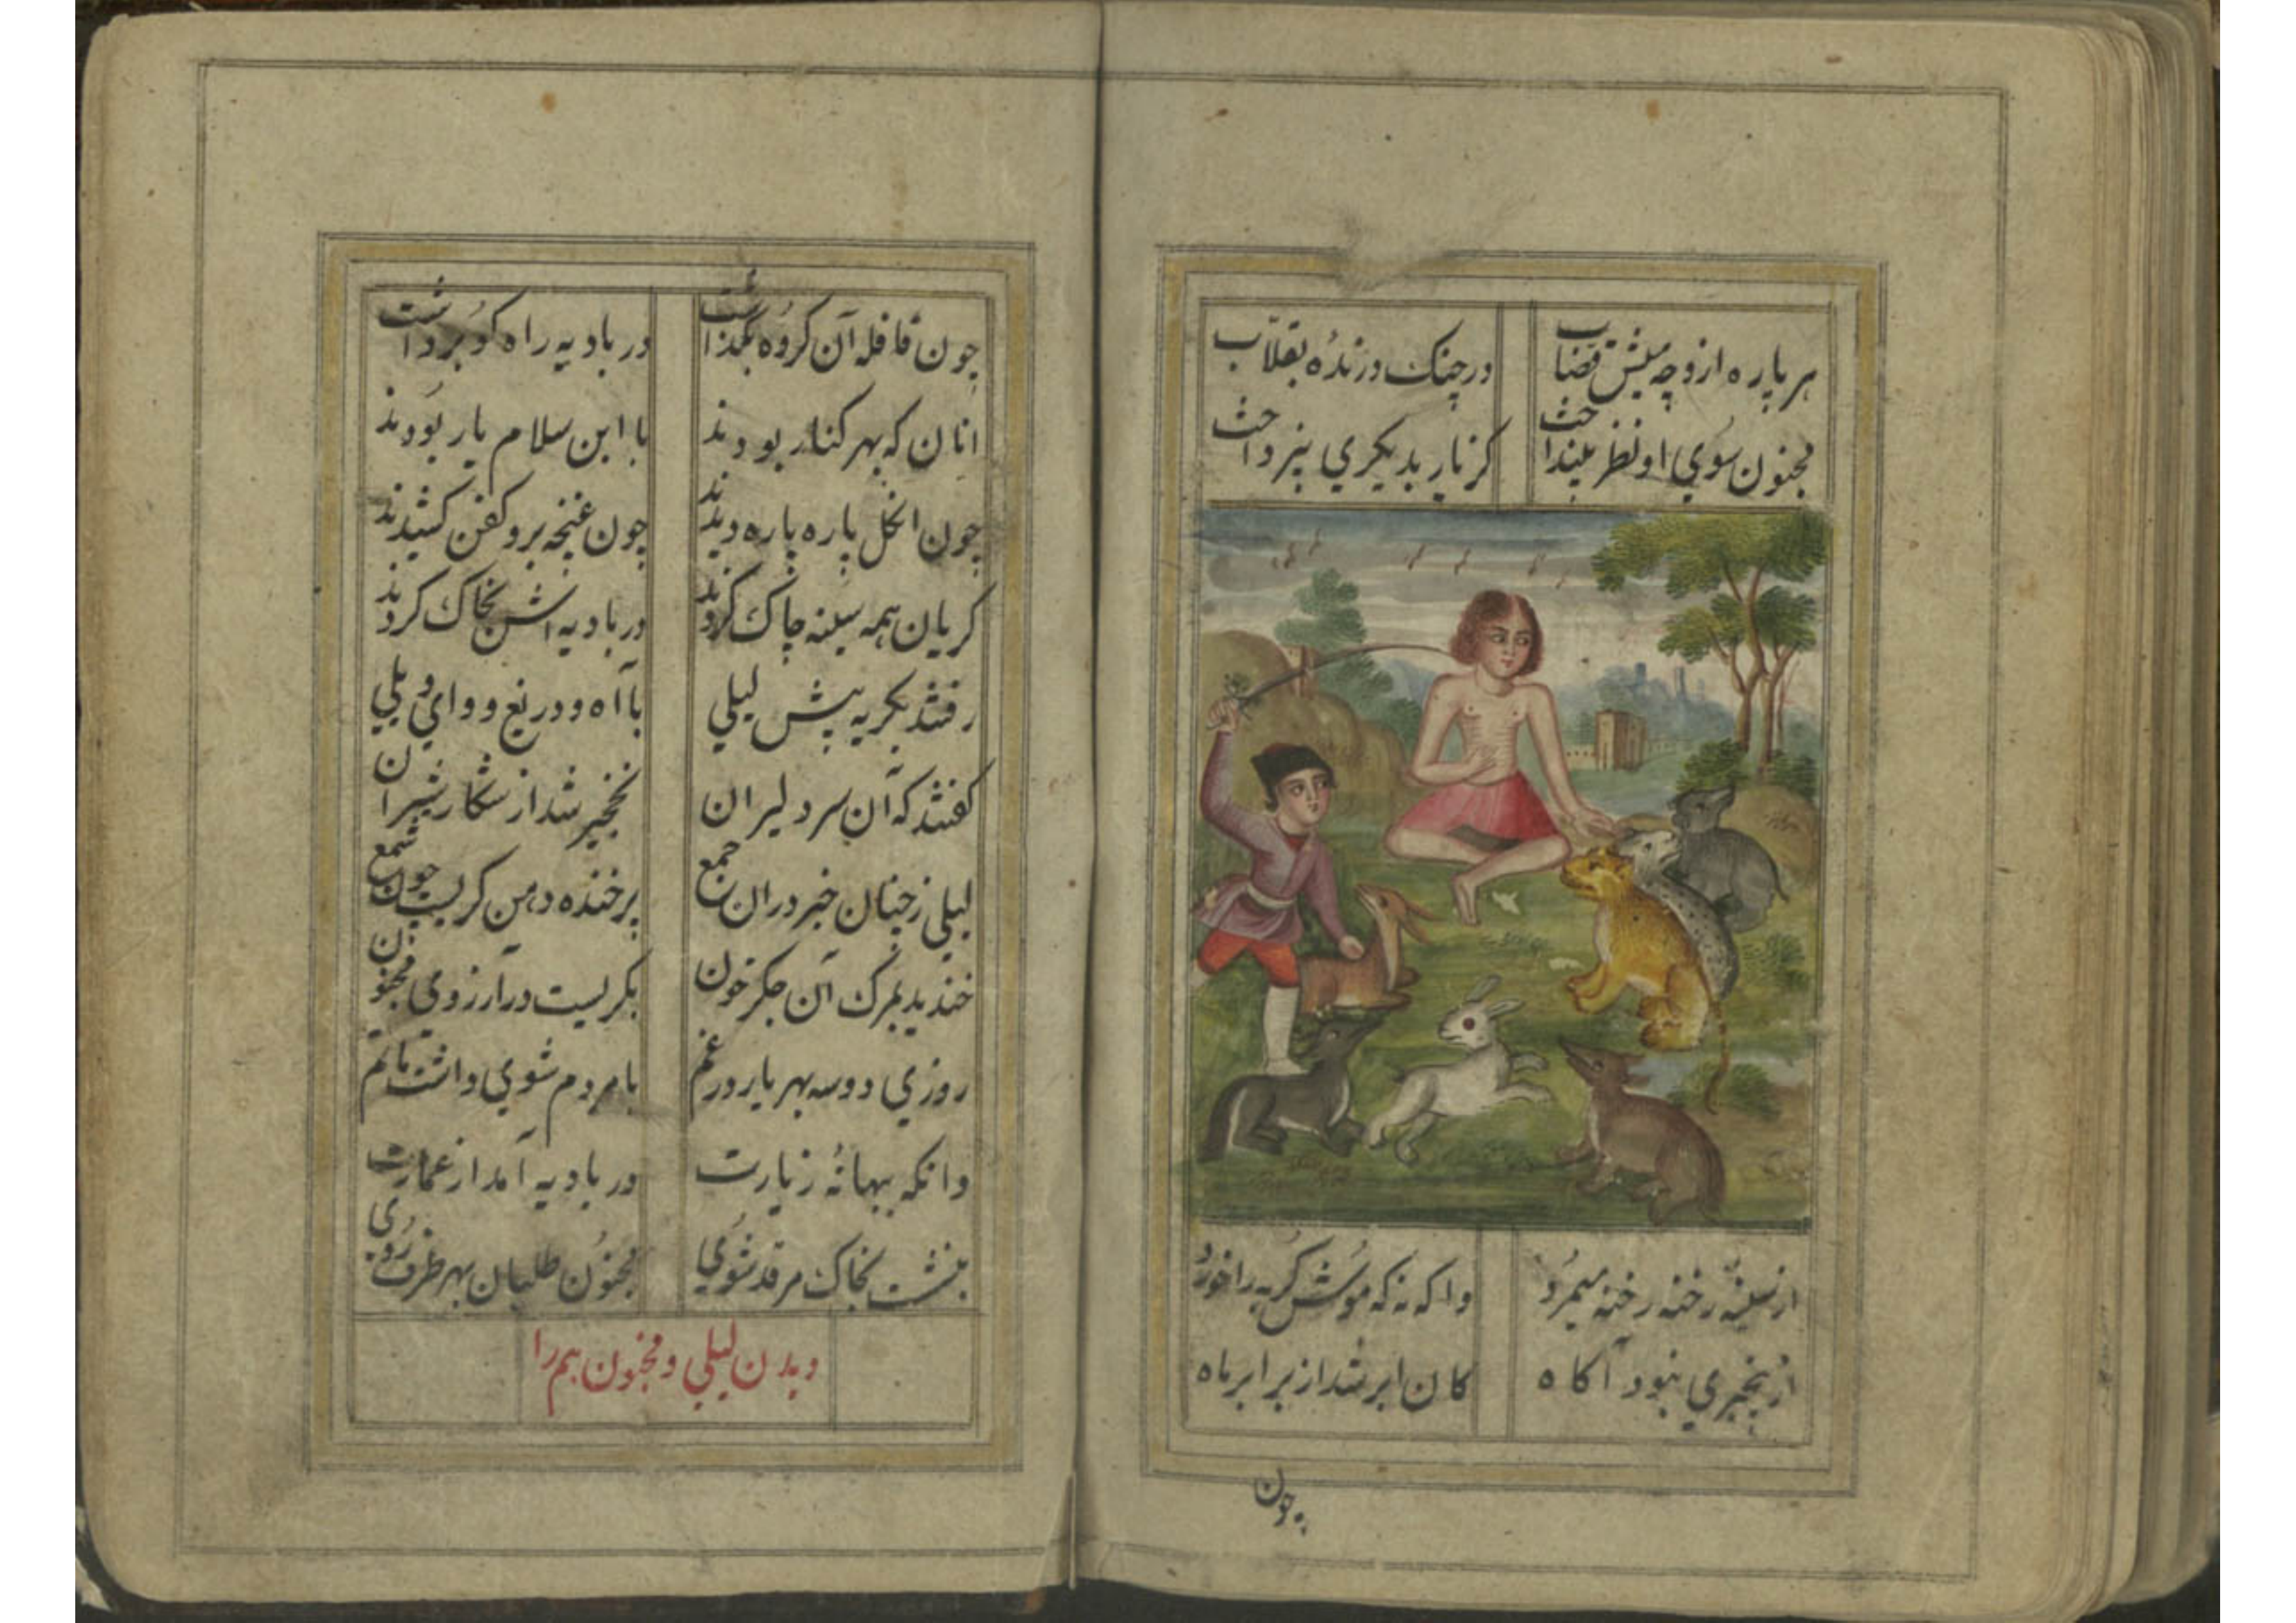 هر پاره ازو چه میش قصّاب در چنک درندهٔ بقلّاب
مجنون سوي او نظر نینداخت کز یار بدیکري نپرداخت
از سینهٔ رخنه رخنه میمرد واکه نه که موش کربه را خورد
از بیخبري نبود آکاه کان ابر شد از برابر ماه
چون
چون قافله آن کروه بکذاشت در بادیه راه کور برداشت
انان که بهر کنار بودند با ابن سلام یار بودند
چون انکل پاره پاره دیدند چون غنچه برو کفن کشیدند
کریان همه سینه چاک کردند در بادیه اش بخاک کردند
رفتند بکریه پیش لیلي با آه و دریغ و واي ویلي
کفتند که آن سر دلیران نخجیر شد از شکار شیران
لیلي ز چنان خبر دران جمع پر خنده دهن کریست چون شمع
خندید بمرک آن جکر خون بکریست در آرزوي مجنون
روزي دو سه بهر یار در غم با مردم شوي داشت ماتم
وانکه ببهانهٔ زیارت در بادیه آمد از عمارت
بنشست بخاک مرقد شوي مجنون طلبان بهر طرف روي
دیدن لیلي و مجنون هم را